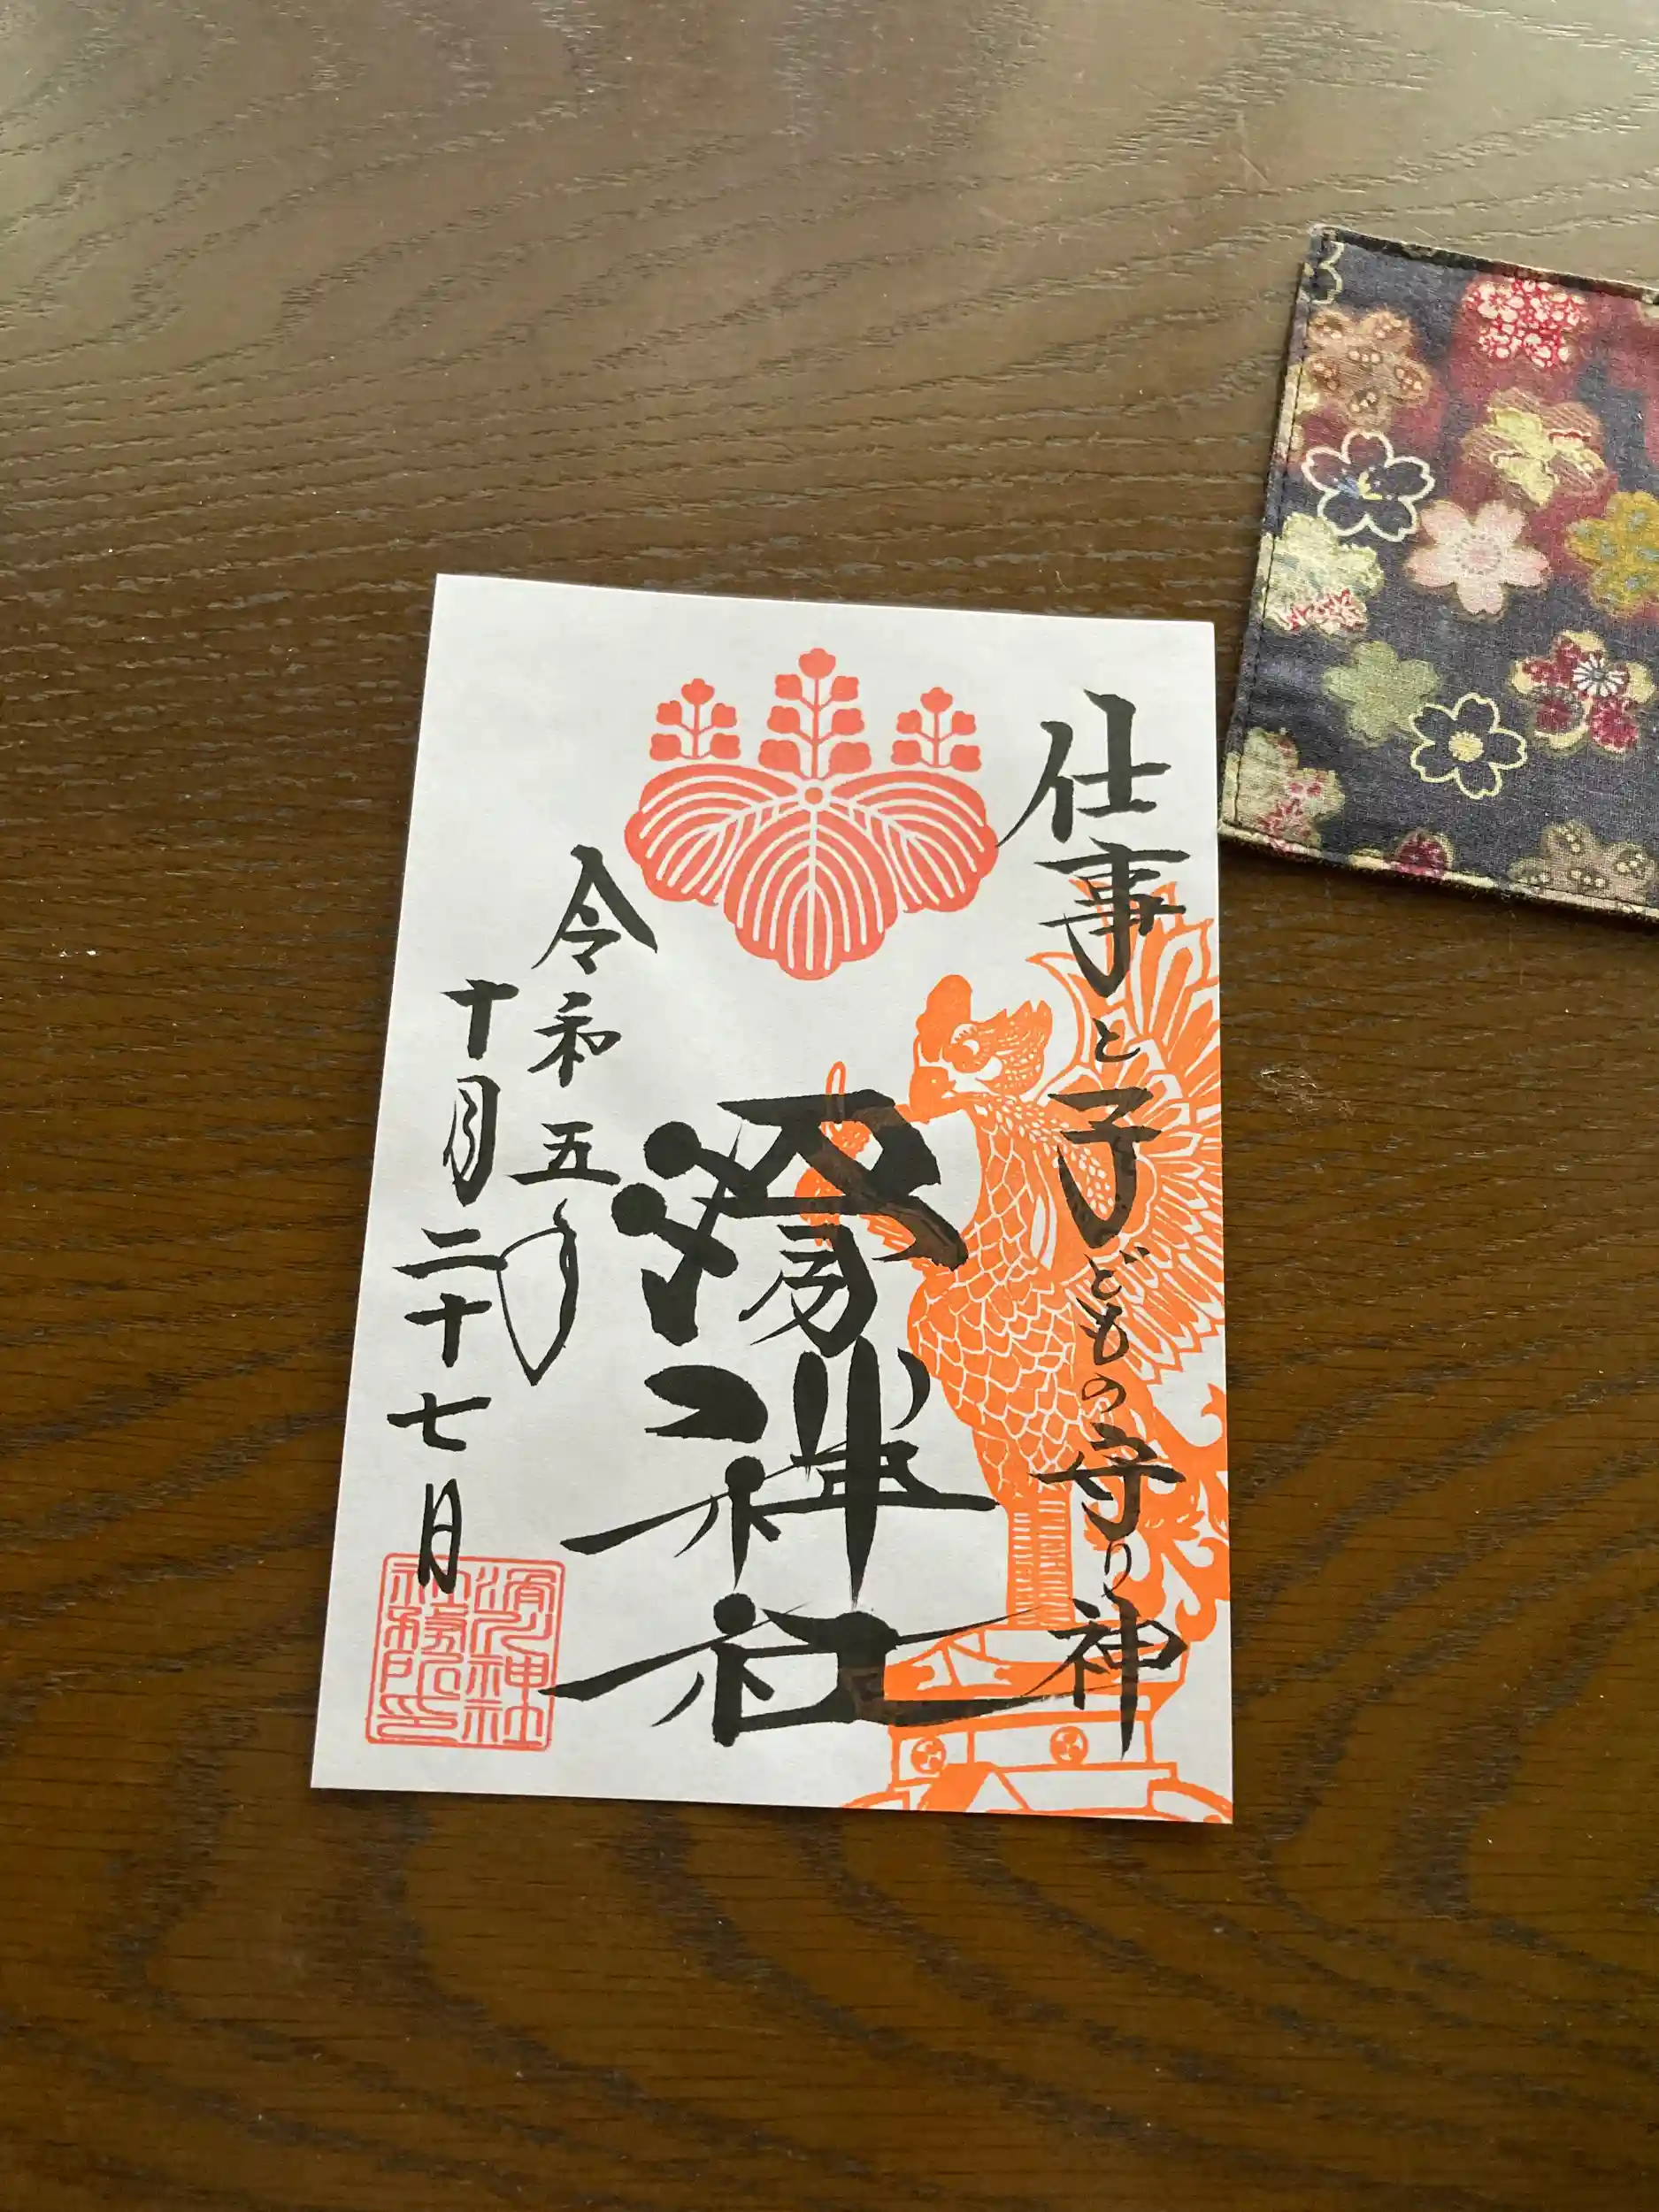 仕事と子どもの守り神
滑川神社
令和五年
十月二十七日
滑川神社
社務所印